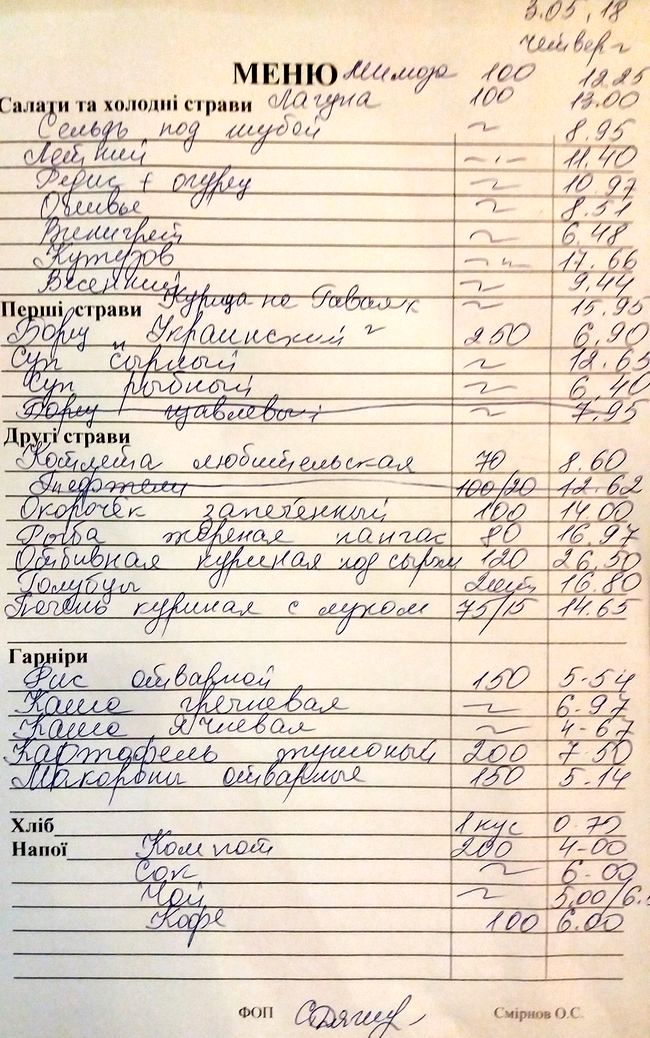 3.05.18
четверг
МЕНЮ Мимоза 100 12.25
Салати та холодні страви Лагуна 100 13.00
Сельдь под шубой ~ 8.95
Летний -"- 11.40
Редис + огурец ~ 10.97
Оливье ~ 8.51
Винигрет ~ 6.48
Кутузов -"- 17.66
Весенний ~ 9.44
Курица по Гавайск ~ 15.95
Перші страви
Борщ Украинский 250 6.90
Суп сырный ~ 12.65
Суп рыбный ~ 6.40
Борщ щавлевый ~ 7.95
Другі страви
Котлета любительская 70 8.60
Тефтели 100/20 12.62
Окорочек запеченный 100 14.00
Рыба жареная пангас 80 16.97
Отбивная куриная под сыром 120 26.50
Голубцы 2шт 16.80
Печень куриная с луком 75/15 14.65
Гарніри
Рис отварной 150 5-54
Каша гречневая ~ 6-97
Каша ячневая ~ 4-67
Картофель тушоный 200 7-50
Макароны отварные 150 5-14
Хліб 1 кус 0.70
Напої Компот 200 4-00
Сок ~ 6-00
Чай ~ 5,00/6.
Кофе 100 6.00
ФОП Смірнов О.С.